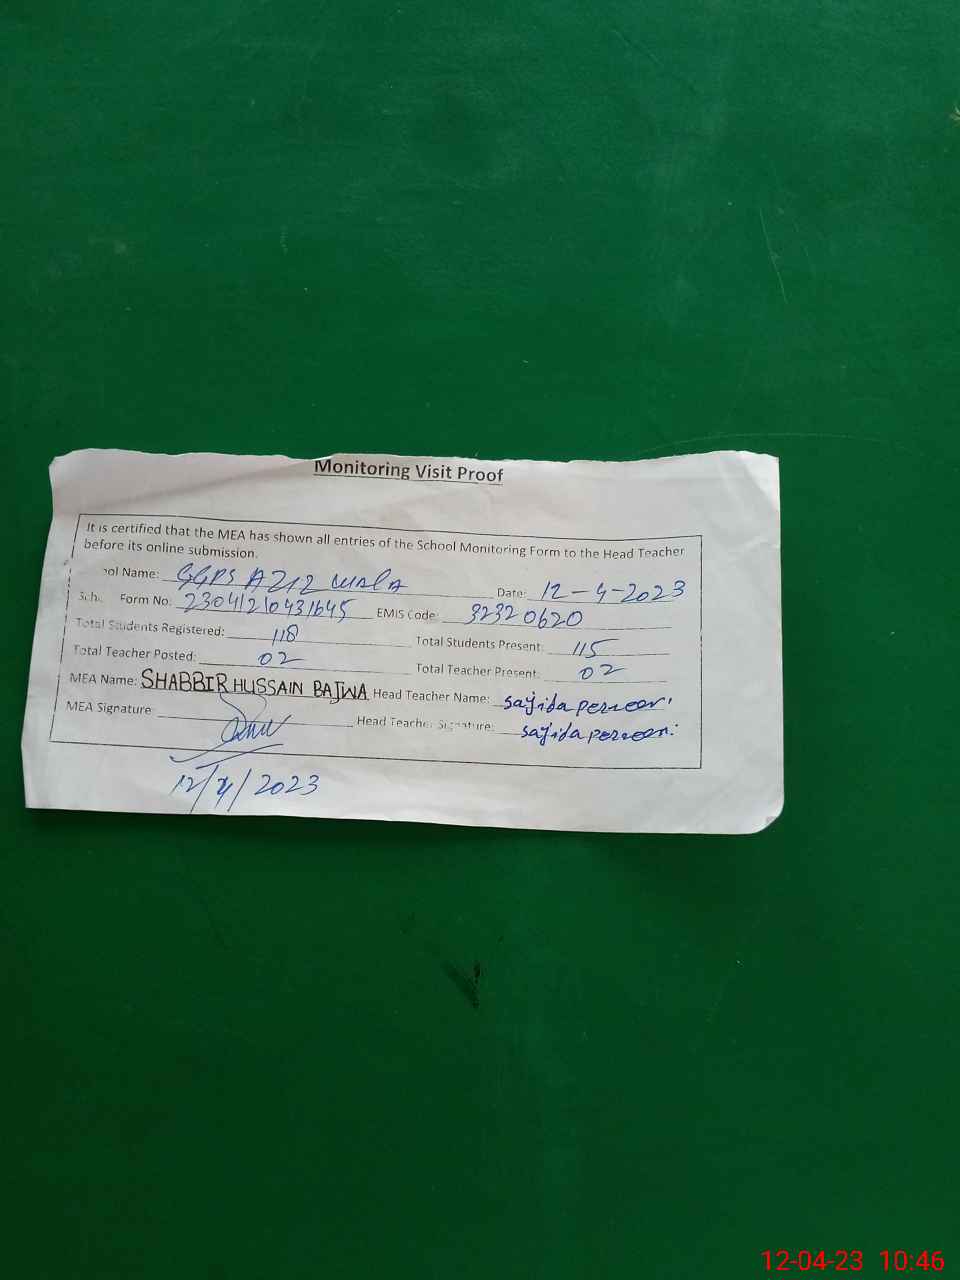 Monitoring Visit Proof
It is certified that the MEA has shown all entries of the School Monitoring Form to the Head Teacher
before its online submission.
ool Name: GGPS AZIZ WALA Date: 12-4-2023
Scho Form No: 23041210431645 EMIS Code: 32320620
Total Students Registered: 118 Total Students Present: 115
Total Teacher Posted: 02 Total Teacher Present: 02
MEA Name: SHABBIR HUSSAIN BAJWA Head Teacher Name: Sajida perveen
MEA Signature: Head Teacher Signature: Sajida perveen
12/4/2023
12-04-23 10:46